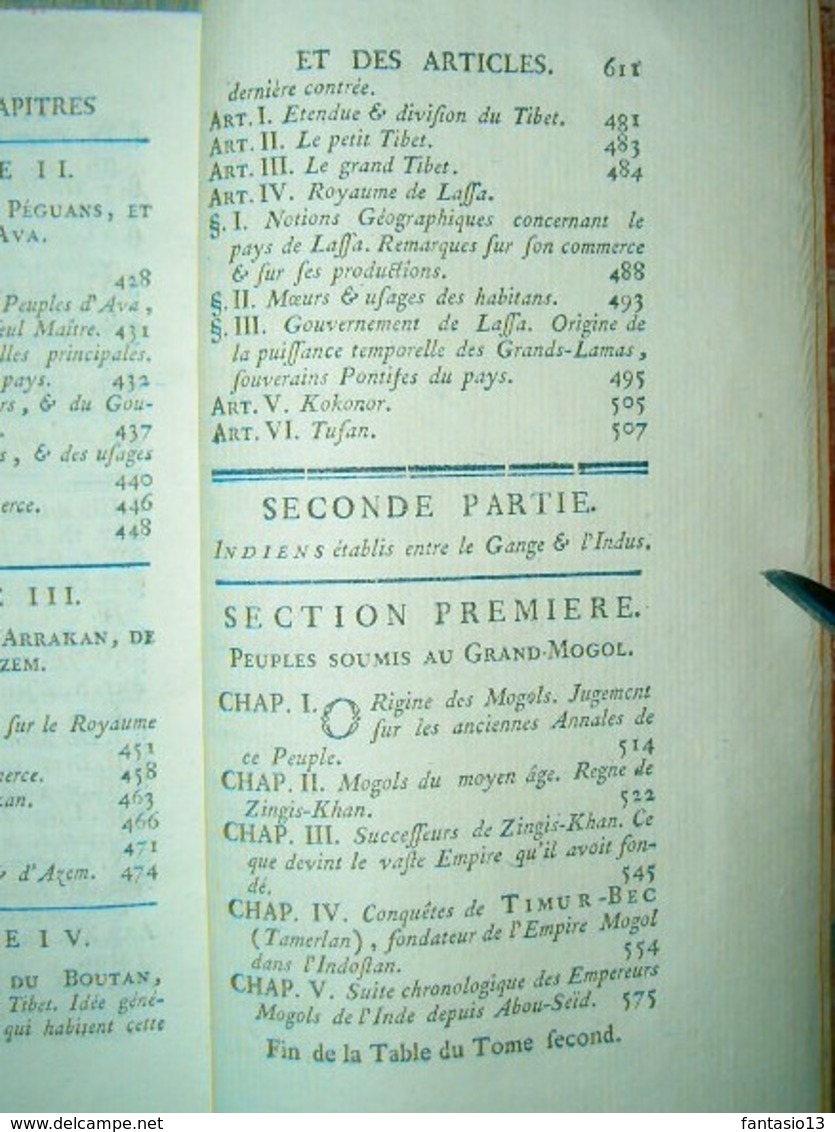 APITRES
E II.
PÉGUANS, ET
AVA.
428
Peuples d'Ava,
eul Maître. 431
lles principales.
pays. 432
rs, & du Gou-
437
s, & des uſages
440
erce. 446
448
E III.
ARRAKAN, DE
ZEM.
ſur le Royaume
451
merce. 458
kan. 463
466
471
& d'Azem. 474
E IV.
DU BOUTAN,
Tibet. Idée géné-
qui habitent cette
ET DES ARTICLES. 611
dernière contrée.
ART. I. Etendue & diviſion du Tibet. 481
ART. II. Le petit Tibet. 483
ART. III. Le grand Tibet. 484
ART. IV. Royaume de Laſſa.
§. I. Notions Géographiques concernant le
pays de Laſſa. Remarques ſur ſon commerce
& ſur ſes productions. 488
§. II. Mœurs & uſages des habitans. 493
§. III. Gouvernement de Laſſa. Origine de
la puiſſance temporelle des Grands-Lamas,
ſouverains Pontifes du pays. 495
ART. V. Kokonor. 505
ART. VI. Tufan. 507
SECONDE PARTIE.
INDIENS établis entre le Gange & l'Indus.
SECTION PREMIERE.
PEUPLES SOUMIS AU GRAND-MOGOL.
CHAP. I. ORigine des Mogols. Jugement
ſur les anciennes Annales de
ce Peuple. 514
CHAP. II. Mogols du moyen âge. Regne de
Zingis-Khan. 522
CHAP. III. Succeſſeurs de Zingis-Khan. Ce
que devint le vaſte Empire qu'il avoit fon-
dé. 545
CHAP. IV. Conquêtes de TIMUR-BEC
(Tamerlan), fondateur de l'Empire Mogol
dans l'Indoſtan. 554
CHAP. V. Suite chronologique des Empereurs
Mogols de l'Inde depuis Abou-Seïd. 575
Fin de la Table du Tome ſecond.
www.delcampe.net
fantasio13